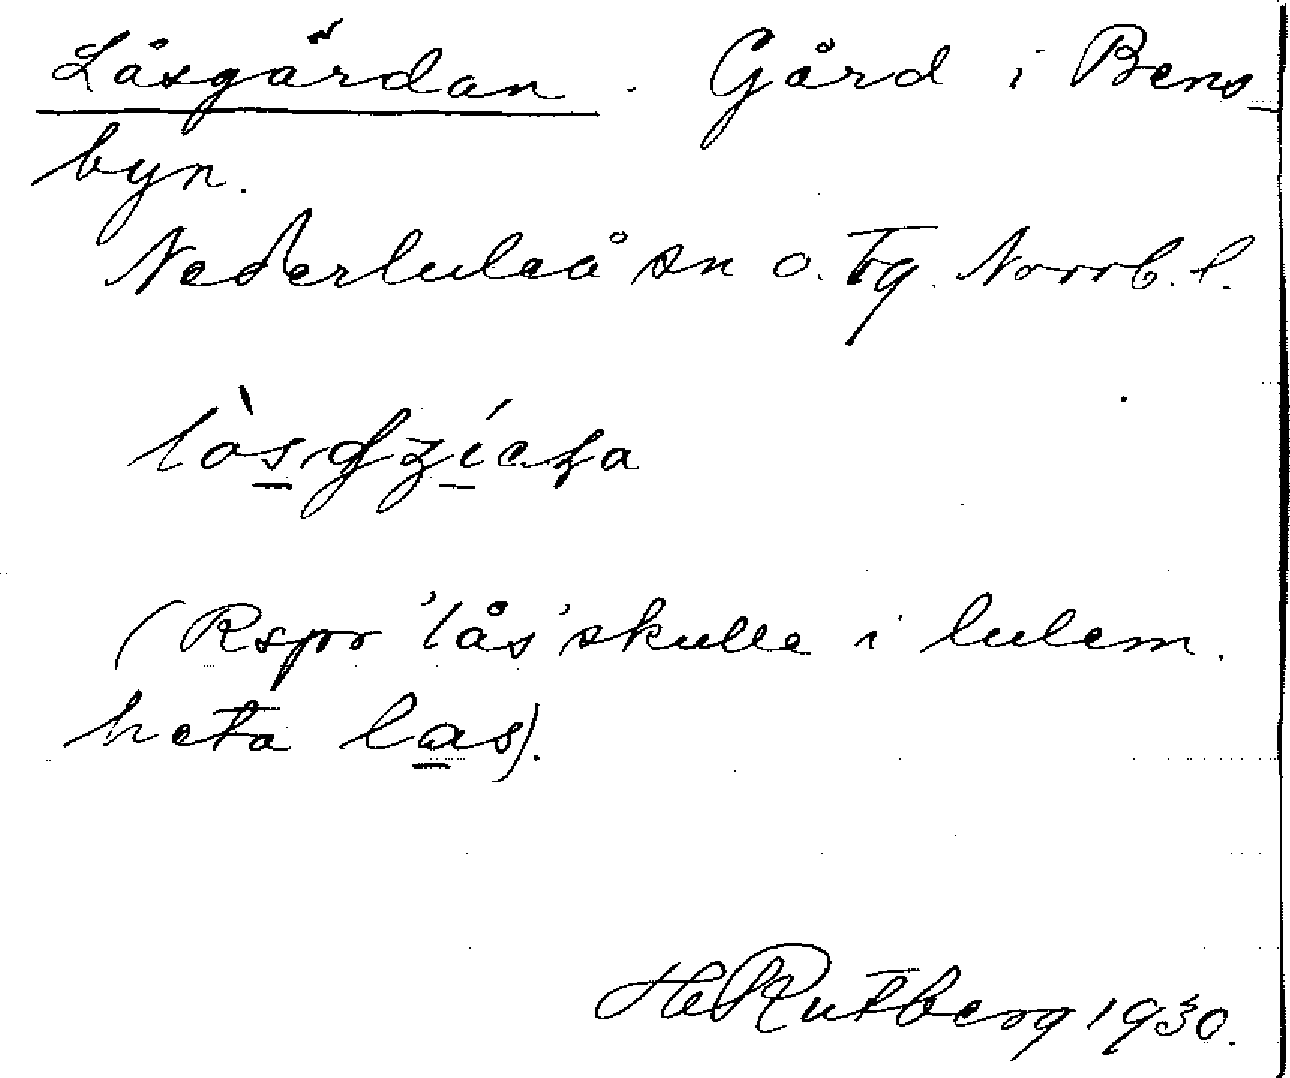 Låsgårdan. Gård i Bens-
byn.
Nederluleå sn o. Tg. Norrb. l.
(Rspr 'lås' skulle i lulem.
heta las).
H Rutberg 1930.